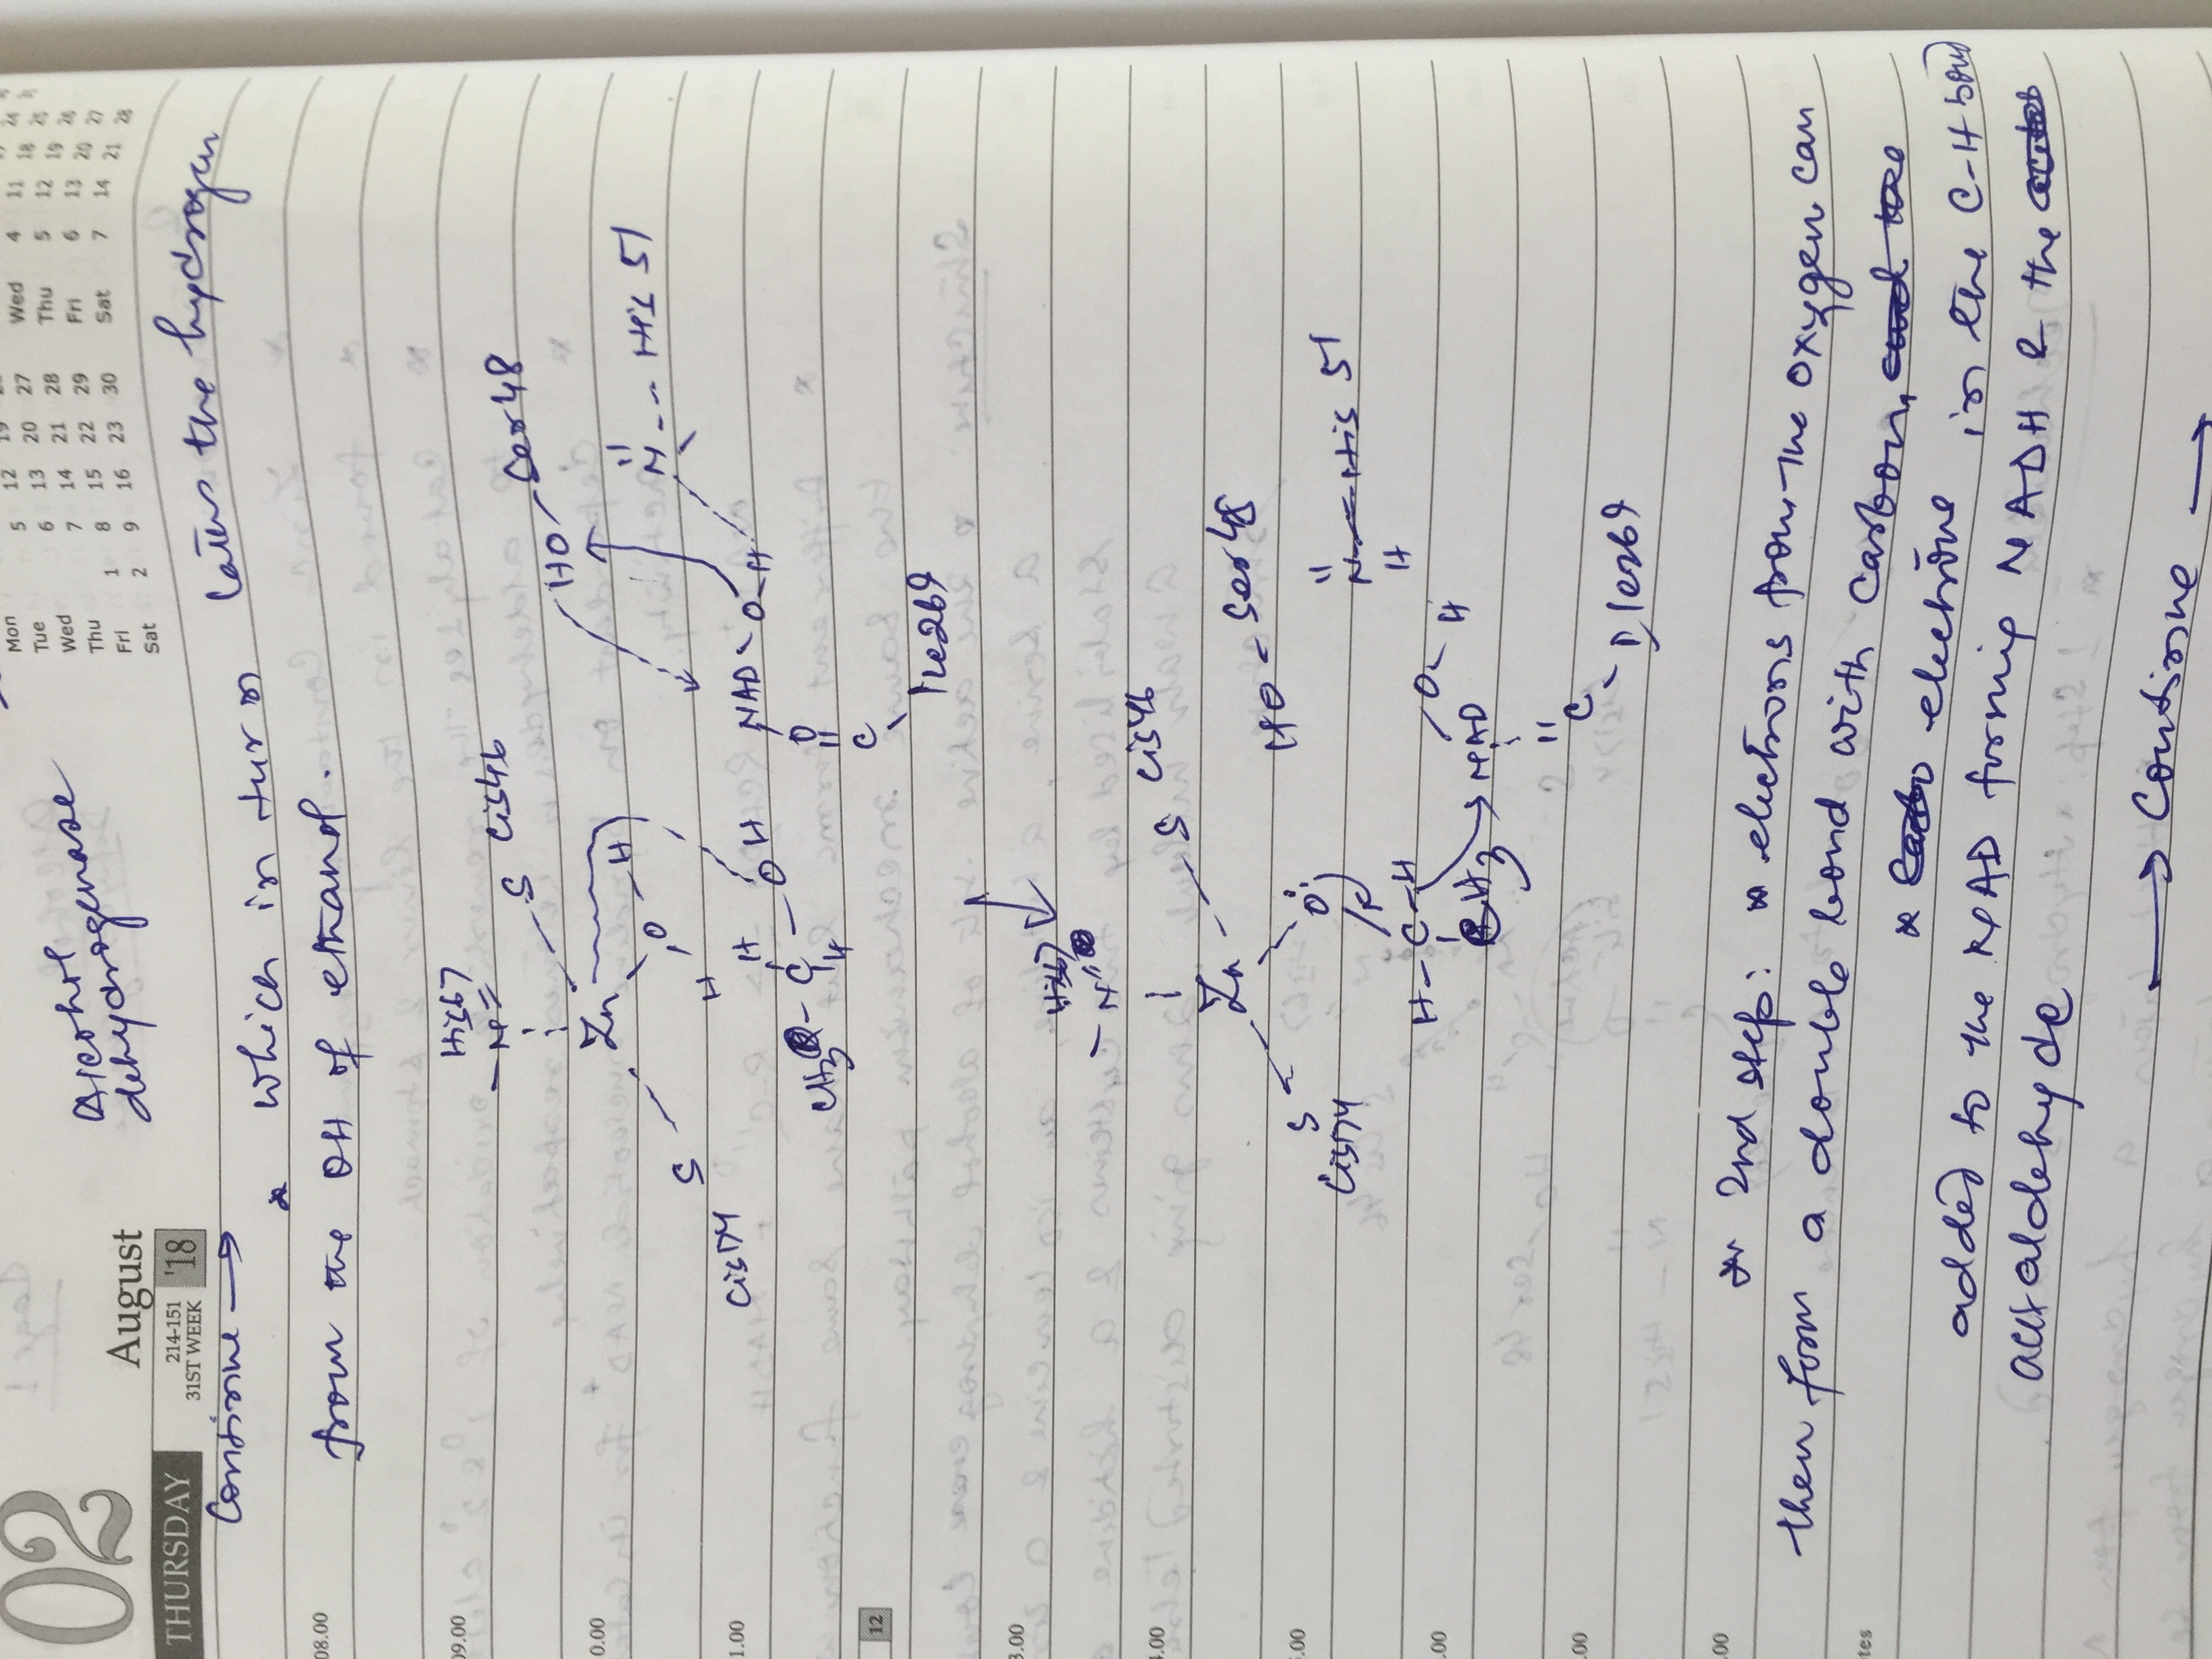 02
August
THURSDAY
214-151
31ST WEEK
'18
Mon 5 12 19
Tue 6 13 20 27
Wed 7 14 21 28
Thu 1 8 15 22 29
Fri 2 9 16 23 30
Sat
Wed 4 11 18
Thu 5 12 19
Fri 6 13 20 27
Sat 7 14 21 28
Alcohol
dehydrogenase
Continue →
* which in turn takes the hydrogen
from the OH of ethanol.
08.00
His67
N
S Cis46
HO - Ser48
09.00
Zn
N --- His 51
S
O - H
H
NAD - O - H
Cis174
H
CH3 - C - OH
H
O
C
Ile269
12
His67
N
S Cis46
Zn
HO - Ser48
S
Cis174
O
N - His 51
H
H - C - H
O - H
CH3
NAD
C
Ile269
* 2nd step: * electrons from the oxygen can
then form a double bond with carbon,
* electrons in the C-H bond
added to the NAD forming NADH & the
acetaldehyde
→ Continue →